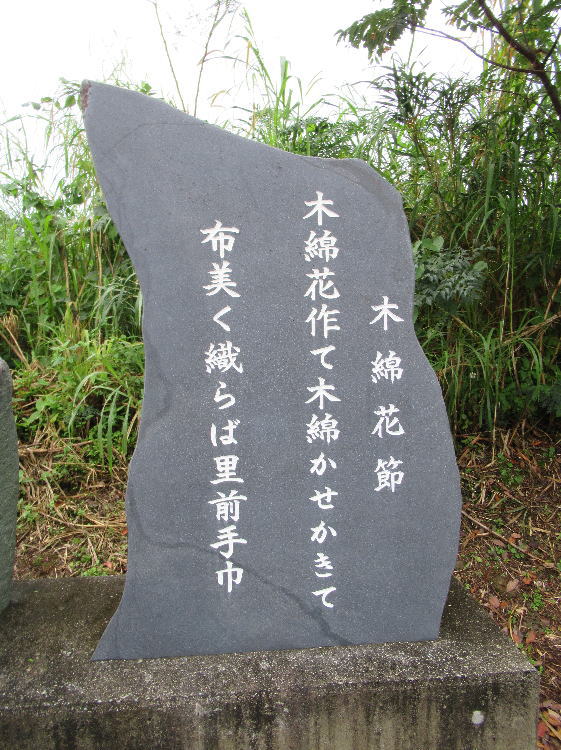 木綿花節
木綿花作て木綿かせかきて
布美く織らば里前手巾